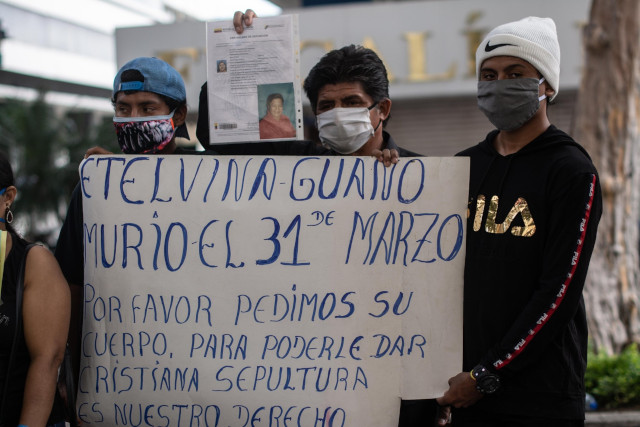 FISCALÍ
ETELVINA-GUANO
MURIO-EL 31 DE MARZO
POR FAVOR PEDIMOS SU
CUERPO, PARA PODERLE DAR
CRISTIANA SEPULTURA
ES NUESTRO DERECHO
FILA
FILA